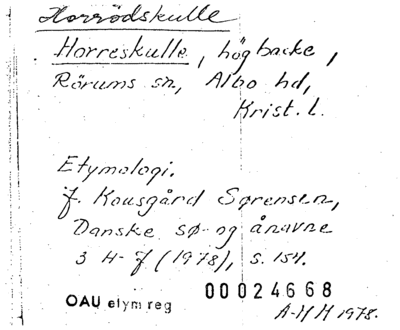 Horrödskulle
Horreskulle, hög backe,
Rörums sn, Albo hd,
Krist. l.
Etymologi.
J. Kousgård Sørensen,
Danske sø- og ånavne
3 H-J (1978), s. 154.
OAU etym reg 00024668
A-H H 1978.